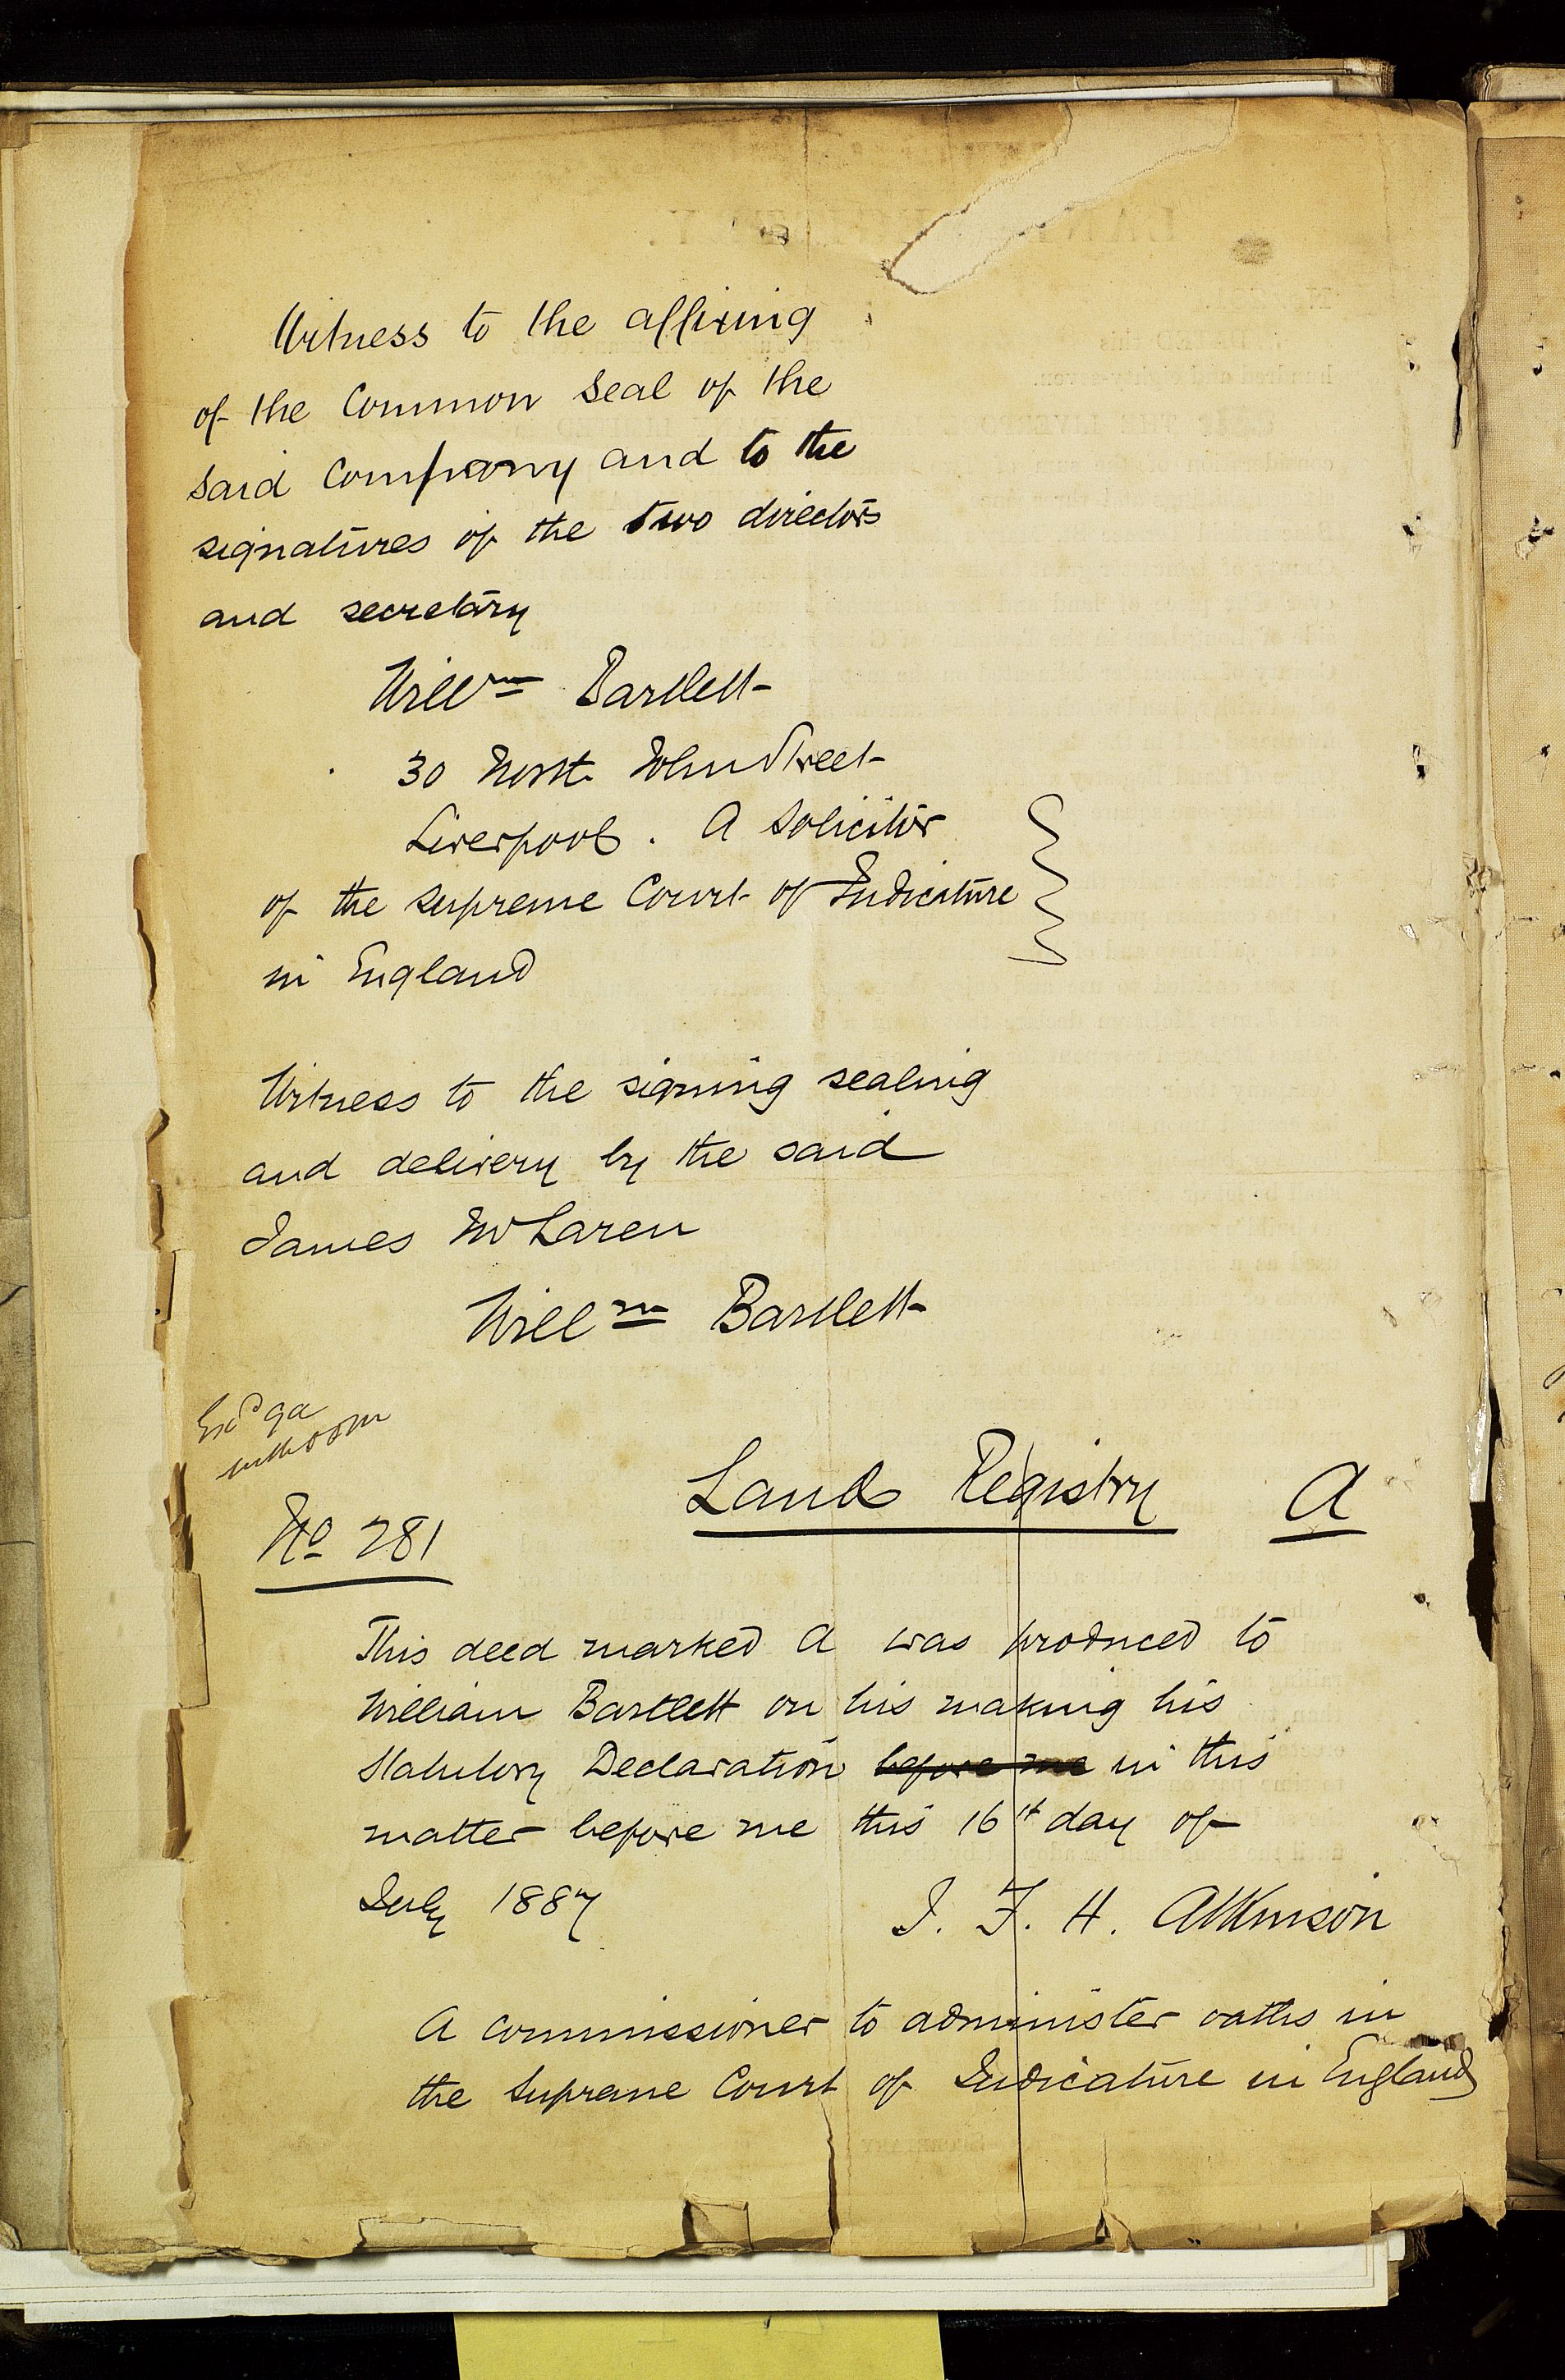 Witness to the affixing
of the Common Seal of the
said Company and to the
signatures of the two directors
and secretary
Willm Bartlett
30 North John Street
Liverpool. A Solicitor
of the Supreme Court of Judicature
in England
Witness to the signing sealing
and delivery by the said
James McLaren
Willm Bartlett
Land Registry A
No 281
This deed marked A was produced to
William Bartlett on his making his
Statutory Declaration before me in this
matter before me this 16th day of
July 1887
J. F. H. Atkinson
A commissioner to administer oaths in
the Supreme Court of Judicature in England